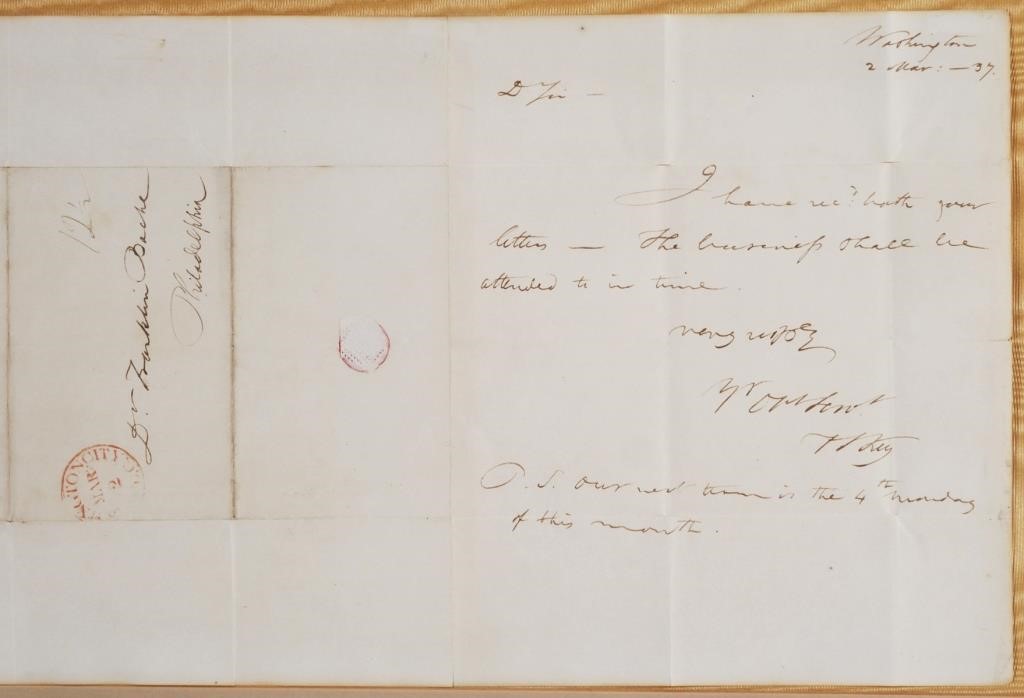 Washington
2 Mar: — 37.
D Sir —
I have recd both your
letters — The business shall be
attended to in time.
very respy
Yr Obt Servt
F S Key
P. S. Our next term is the 4th monday
of this month.
12½
Dr. Franklin Bache
Philadelphia
CITY
MAR
2